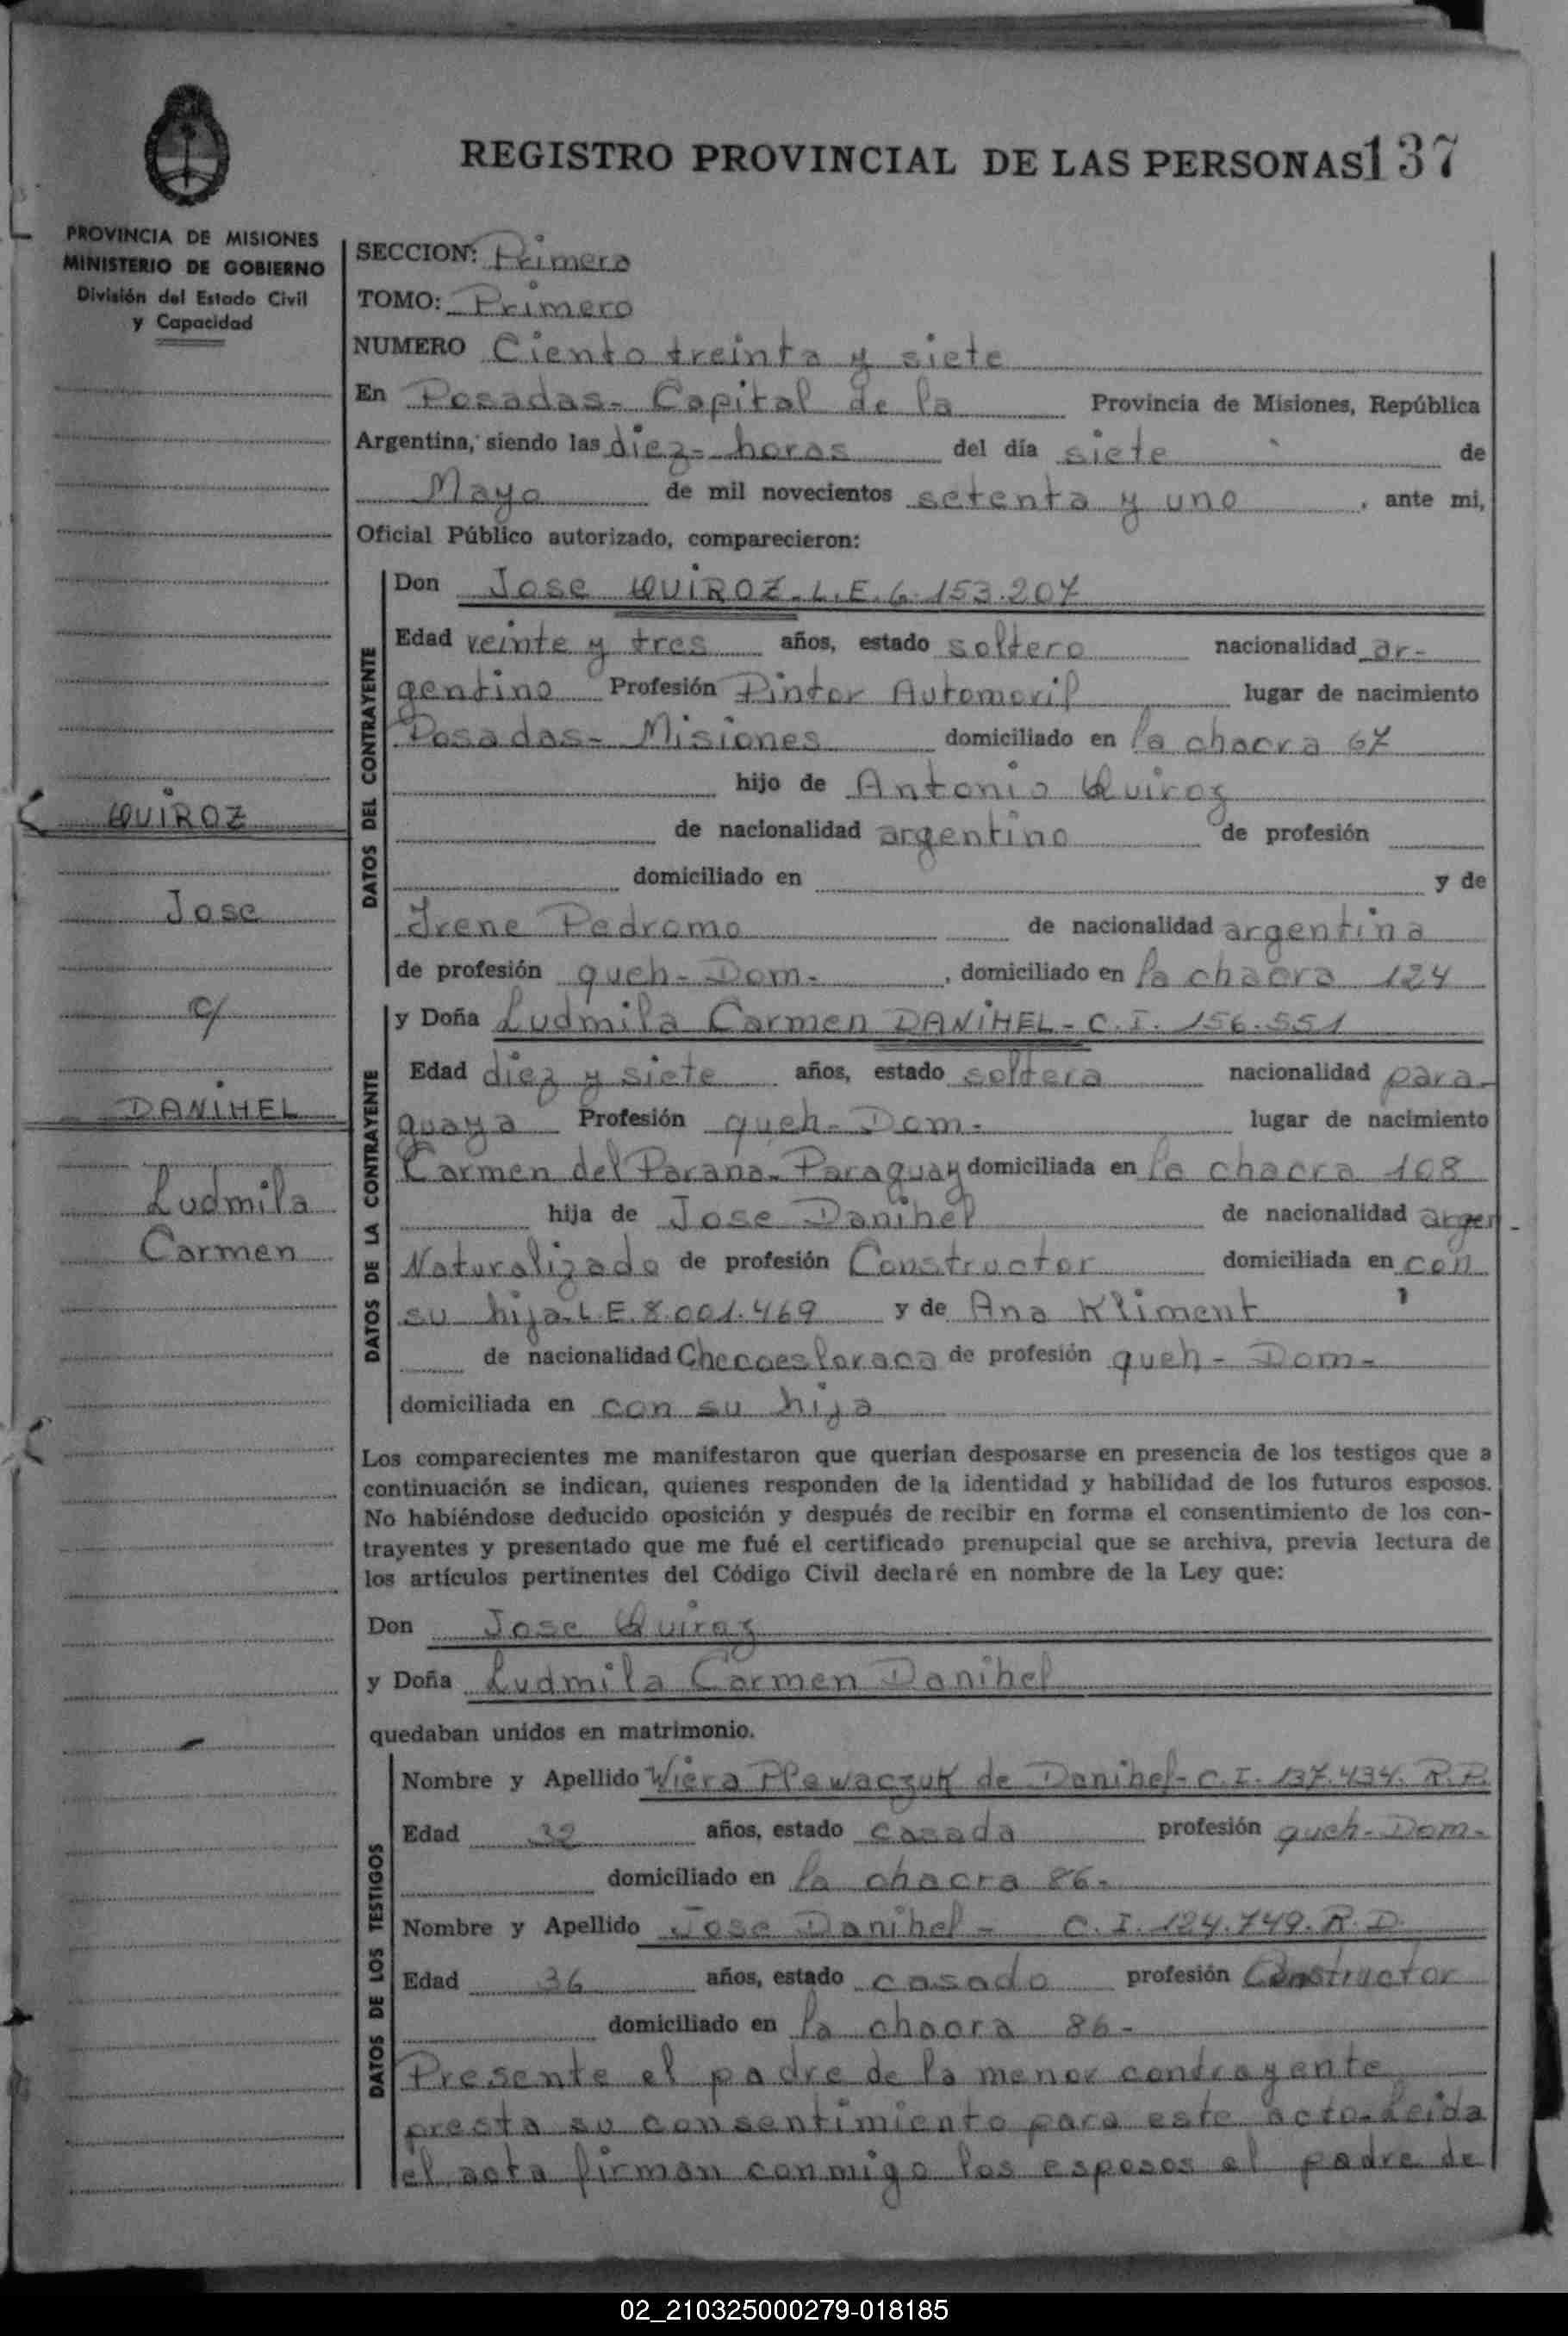 REGISTRO PROVINCIAL DE LAS PERSONAS 137
PROVINCIA DE MISIONES
MINISTERIO DE GOBIERNO
División del Estado Civil
y Capacidad
SECCION: Primera
TOMO: Primero
NUMERO Ciento treinta y siete
En Posadas- Capital de la Provincia de Misiones, República
Argentina, siendo las diez- horas del día siete de
Mayo de mil novecientos setenta y uno, ante mi,
Oficial Público autorizado, comparecieron:
DATOS DEL CONTRAYENTE
Don Jose QUIROZ- L.E. 6.153.207
Edad veinte y tres años, estado soltero nacionalidad ar-
gentino Profesión Pintor Automovil lugar de nacimiento
Posadas- Misiones domiciliado en la chacra 67
hijo de Antonio Quiroz
de nacionalidad argentino de profesión
domiciliado en y de
Irene Pedromo de nacionalidad argentina
de profesión queh- Dom-, domiciliado en la chacra 124
QUIROZ
Jose
c/
DANIHEL
Ludmila
Carmen
DATOS DE LA CONTRAYENTE
y Doña Ludmila Carmen DANIHEL- C.I. 156.551
Edad diez y siete años, estado soltera nacionalidad para-
guaya Profesión queh- Dom- lugar de nacimiento
Carmen del Parana- Paraguay domiciliada en la chacra 108
hija de Jose Danihel de nacionalidad argen-
Naturalizado de profesión Constructor domiciliada en con
su hija- L.E. 8.001.469 y de Ana Kliment
de nacionalidad Checoeslovaca de profesión queh- Dom-
domiciliada en con su hija
Los comparecientes me manifestaron que querían desposarse en presencia de los testigos que a
continuación se indican, quienes responden de la identidad y habilidad de los futuros esposos.
No habiéndose deducido oposición y después de recibir en forma el consentimiento de los con-
trayentes y presentado que me fué el certificado prenupcial que se archiva, previa lectura de
los artículos pertinentes del Código Civil declaré en nombre de la Ley que:
Don Jose Quiroz
y Doña Ludmila Carmen Danihel
quedaban unidos en matrimonio.
DATOS DE LOS TESTIGOS
Nombre y Apellido Wiera Plewaczuk de Danihel- C.I. 137.434. R.P.
Edad 32 años, estado casada profesión queh- Dom-
domiciliado en la chacra 86-
Nombre y Apellido Jose Danihel- C.I. 124.749. R.D.
Edad 36 años, estado casado profesión Constructor
domiciliado en la chacra 86-
Presente el padre de la menor contrayente
presta su consentimiento para este acto- Leida
el acta firman conmigo los esposos el padre de
02_210325000279-018185